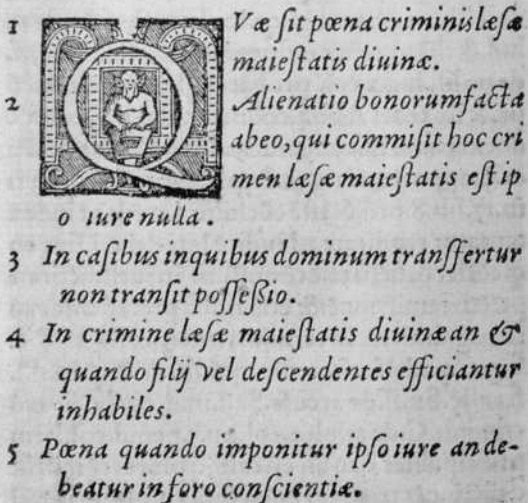 1 QVæ ſit pœna criminis læſæ
maieſtatis diuinæ.
2 Alienatio bonorum facta
ab eo, qui commiſit hoc cri
men læſæ maieſtatis eſt ip
o iure nulla.
3 In caſibus in quibus dominum tranſfertur
non tranſit poſſeßio.
4 In crimine læſæ maieſtatis diuinæ an &
quando filij vel deſcendentes efficiantur
inhabiles.
5 Pœna quando imponitur ipſo iure an de-
beatur in foro conſcientiæ.